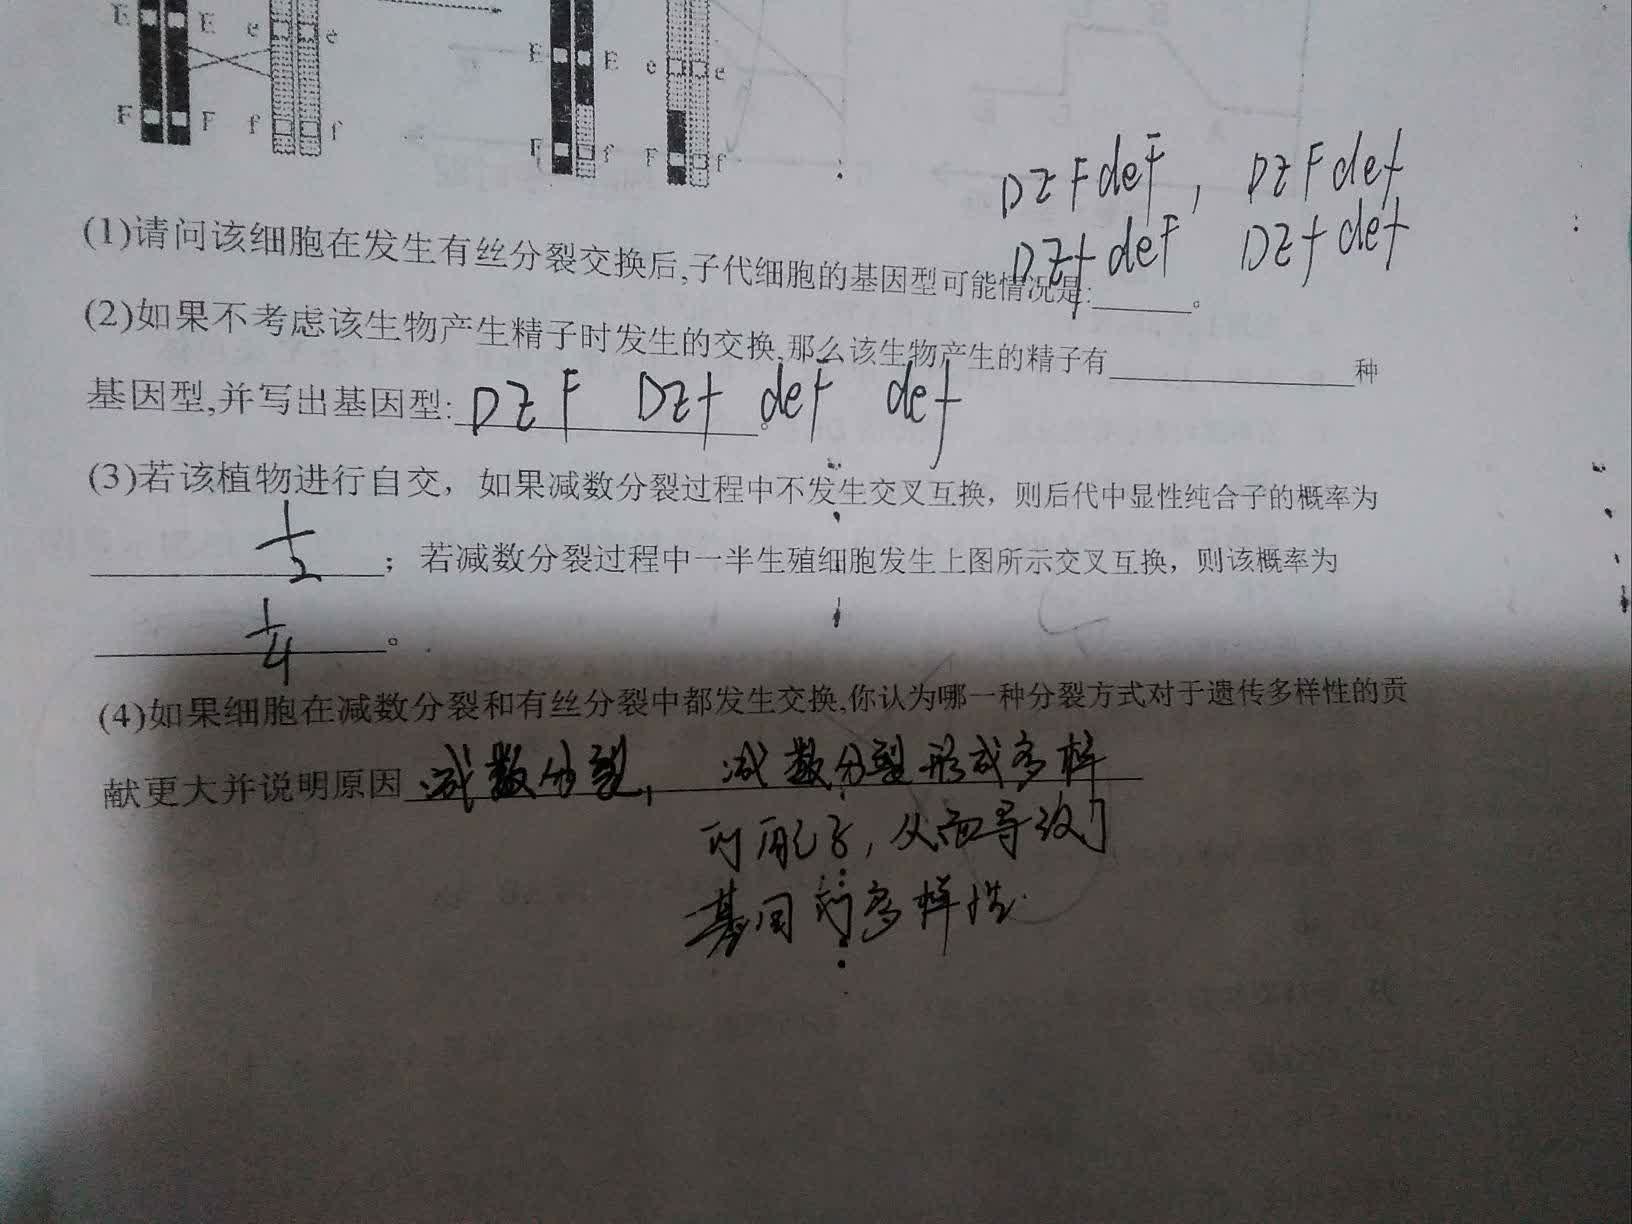 E E e e E E e e
F F f f F f F f
DEFdeF, DEFdef
DEfdeF DEfdef
(1)请问该细胞在发生有丝分裂交换后,子代细胞的基因型可能情况是:______。
(2)如果不考虑该生物产生精子时发生的交换,那么该生物产生的精子有______种
基因型,并写出基因型: DEF DEf deF def。
(3)若该植物进行自交，如果减数分裂过程中不发生交叉互换，则后代中显性纯合子的概率为
1/2；若减数分裂过程中一半生殖细胞发生上图所示交叉互换，则该概率为
1/4。
(4)如果细胞在减数分裂和有丝分裂中都发生交换,你认为哪一种分裂方式对于遗传多样性的贡
献更大并说明原因 减数分裂, 减数分裂形成多样
的配子, 从而导致了
基因的多样性.